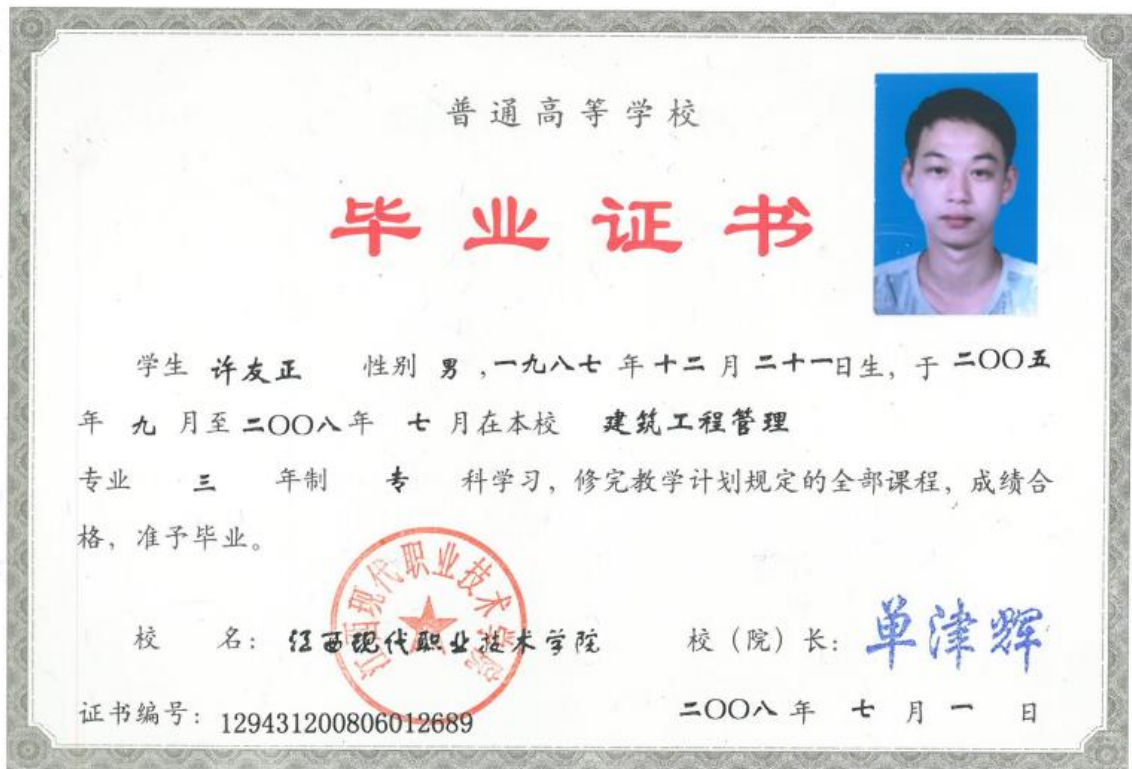 普通高等学校
毕业证书
学生 许友正 性别 男,一九八七 年 十二 月 二十一日生, 于 二〇〇五
年 九 月至 二〇〇八年 七 月在本校 建筑工程管理
专业 三 年制 专 科学习, 修完教学计划规定的全部课程, 成绩合
格, 准予毕业。
江西现代职业技术学院
校 名: 江西现代职业技术学院 校(院)长: 单津辉
证书编号: 129431200806012689 二〇〇八 年 七 月 一 日